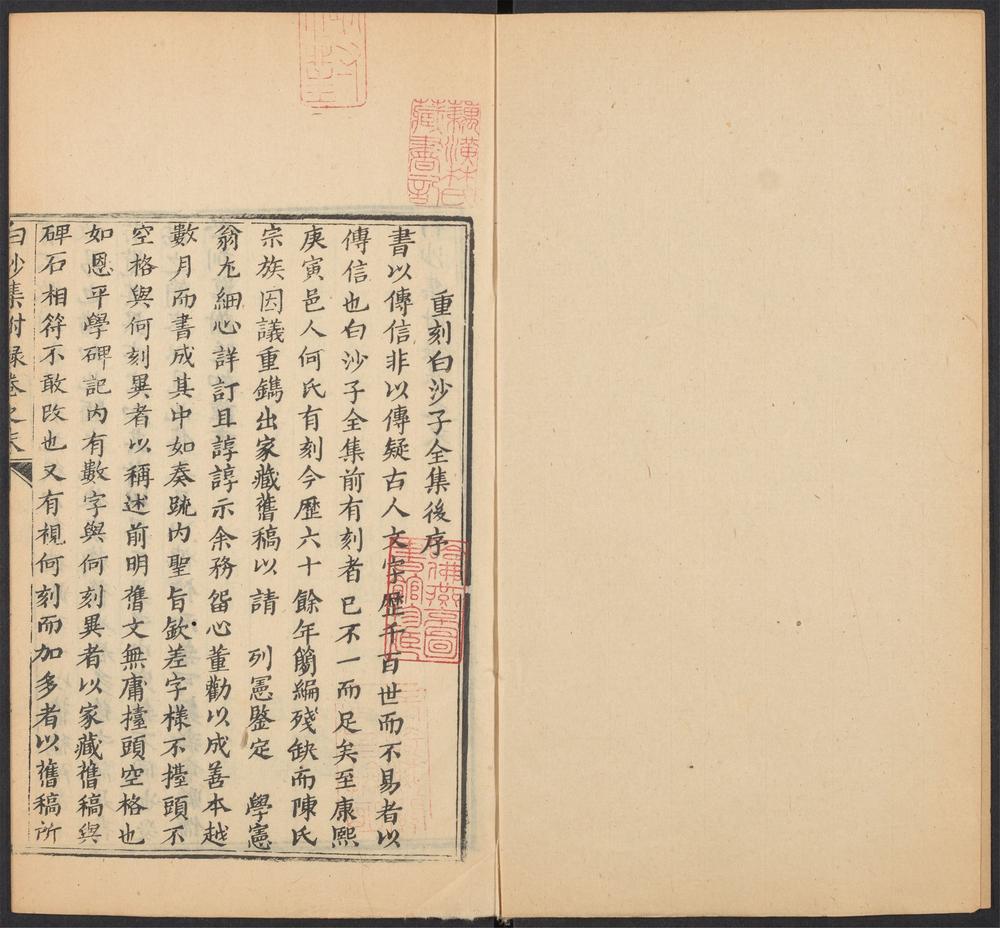 重刻白沙子全集後序
書以傳信非以傳疑古人文字歷千百世而不易者以
傳信也白沙子全集前有刻者已不一而足矣至康熙
庚寅邑人何氏有刻今歷六十餘年簡編殘缺而陳氏
宗族因議重鐫出家藏舊稿以請　列憲鑒定　學憲
翁尤細心詳訂且諄諄示余務留心董勸以成善本越
數月而書成其中如奏疏内聖旨欽差字様不擡頭不
空格與何刻異者以稱述前明舊文無庸擡頭空格也
如恩平學碑記内有數字與何刻異者以家藏舊稿與
碑石相符不敢改也又有視何刻而加多者以舊稿所
白沙集附錄卷之末
藕潢林氏
藏書記
哈佛燕京圖
書館